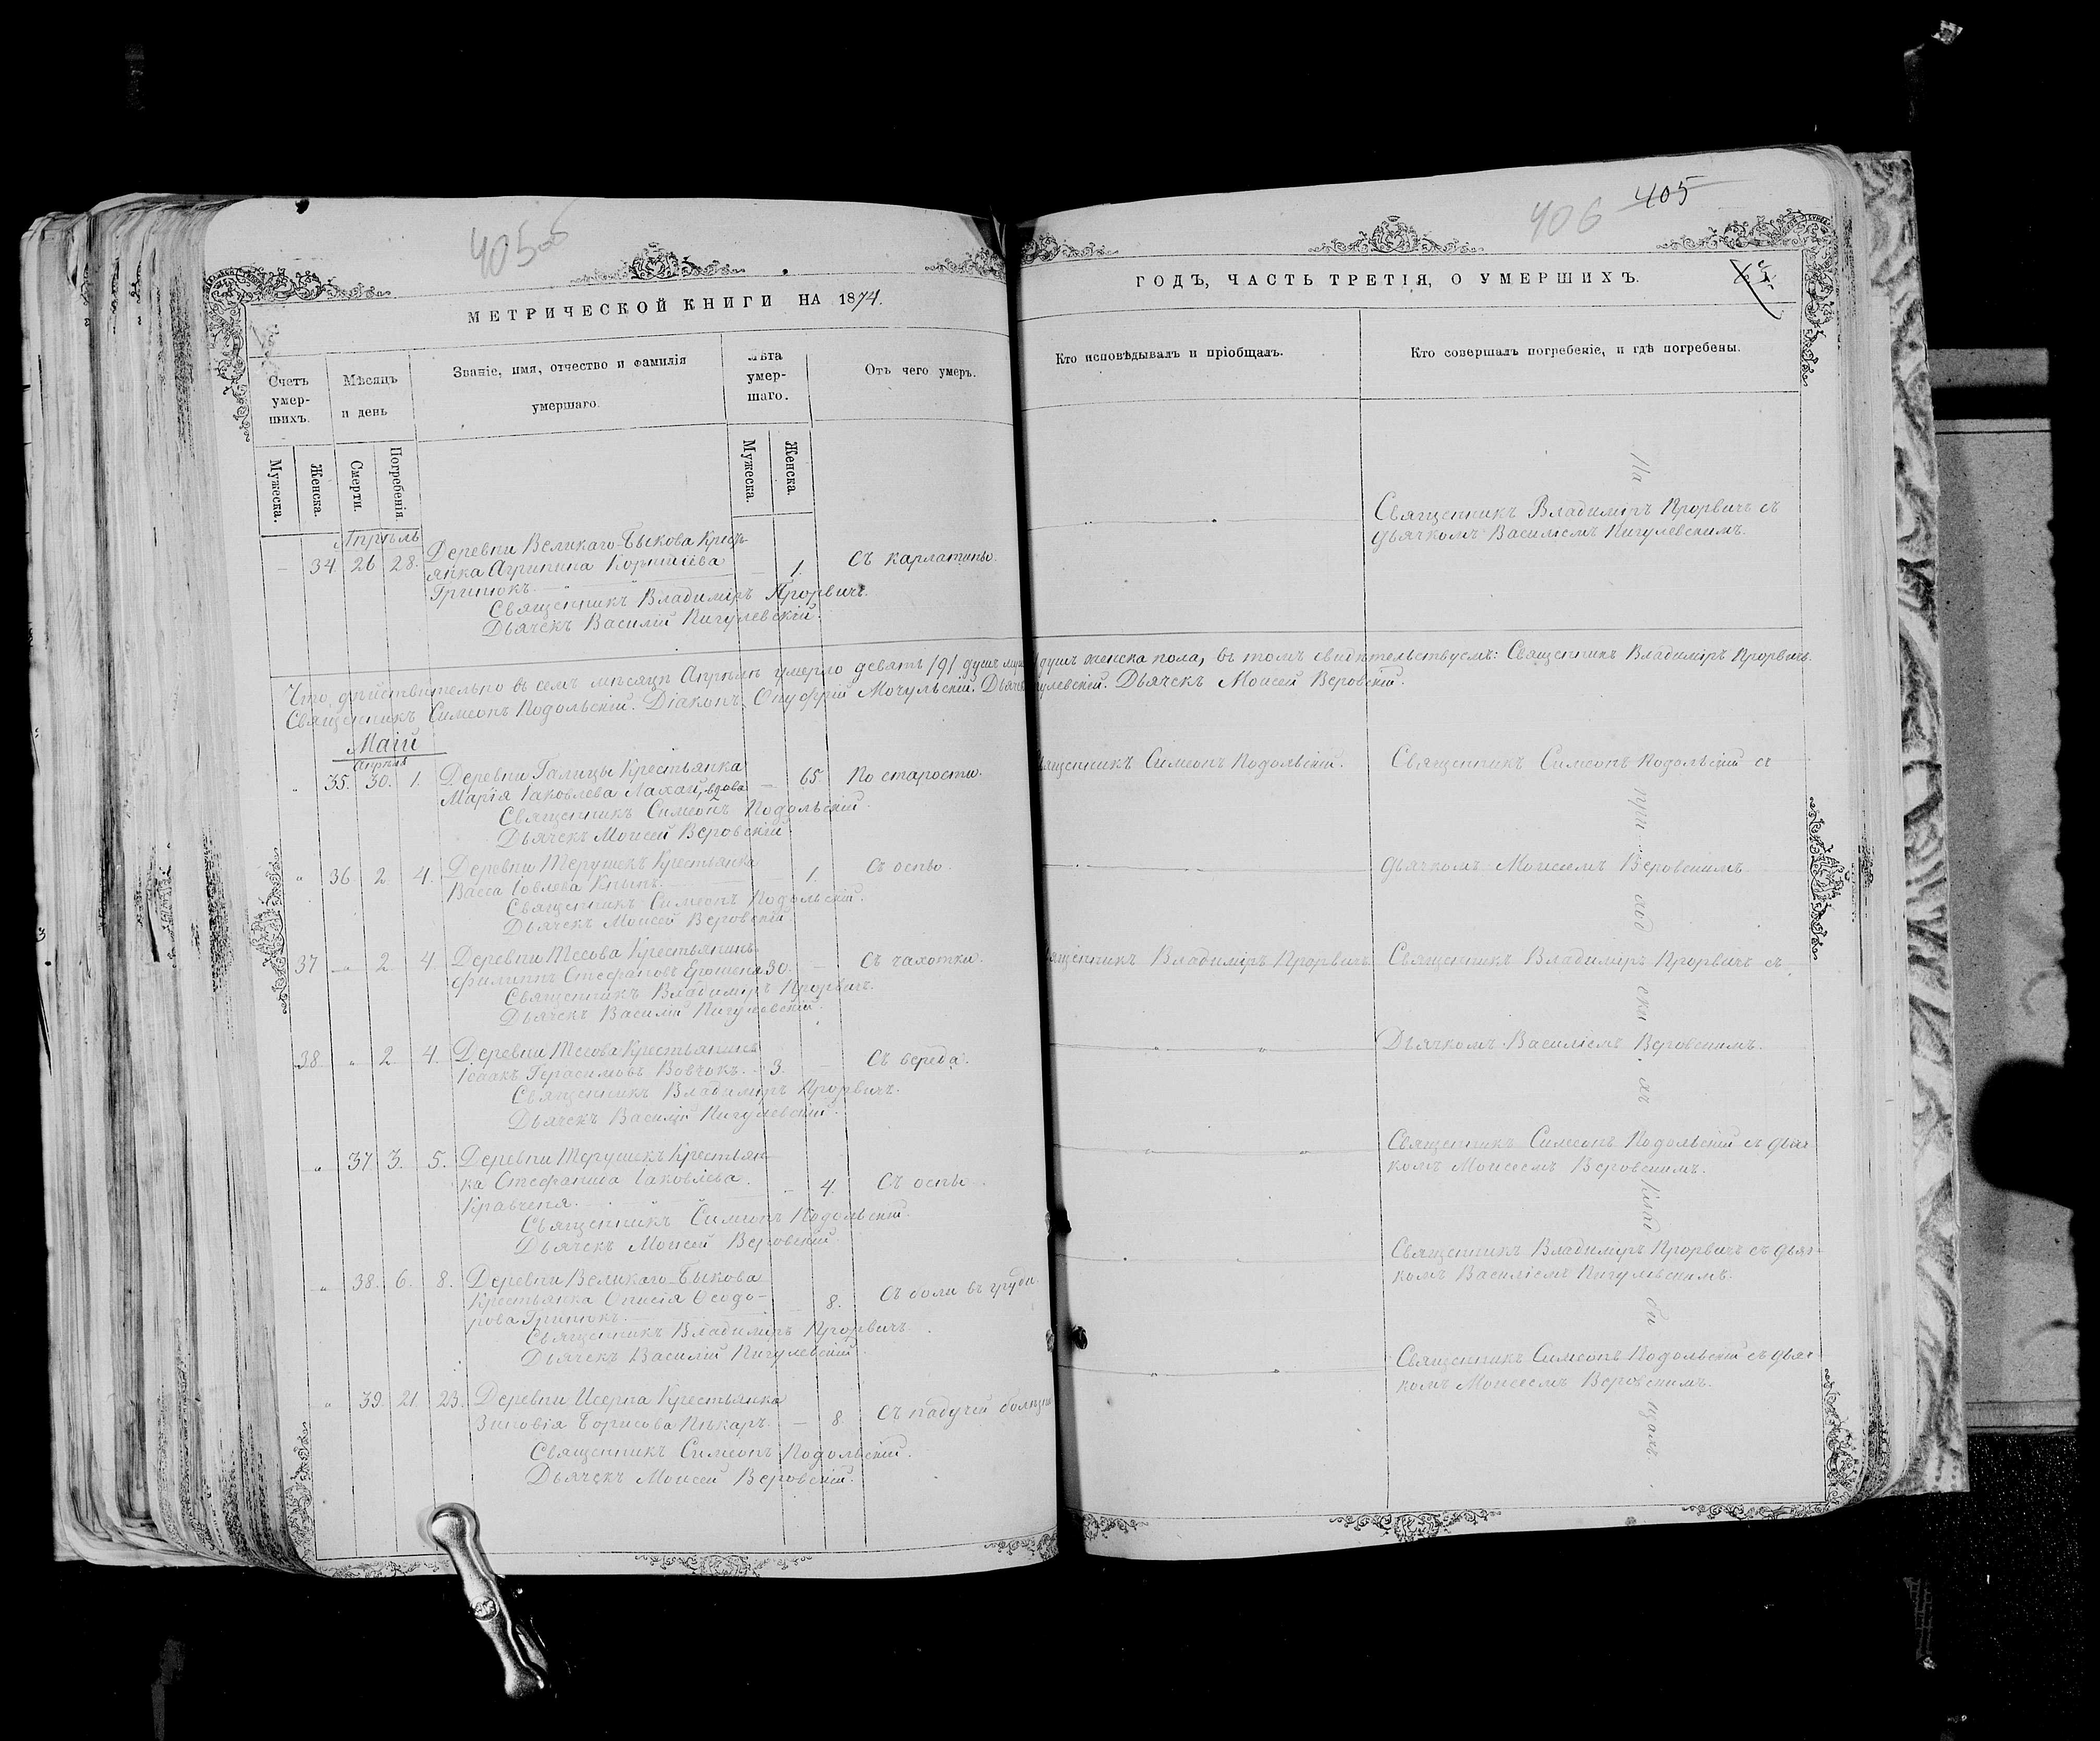 405 об
МЕТРИЧЕСКОЙ КНИГИ НА 1874.
Счетъ умершихъ.
Мѣсяцъ и день
Званіе, имя, отчество и фамилія умершаго.
Лѣта умершаго.
Отъ чего умеръ.
Мужеска.
Женска.
Смерти.
Погребенія.
Мужеска.
Женска.
Апрѣль
— 34 26 28. Деревни Великаго-Быкова Кресть-
янка Агрипина — 1. Съ карлатины.
Гринюкъ.
Священникъ Владиміръ Прорвичъ.
Дьячекъ Василій Пигулевскій.
Что дѣйствительно въ семъ мѣсяцѣ Апрѣлѣ умерло девять /9/ душъ
Священникъ Симеонъ Подольскій. Діаконъ Онуфрій Мочульскій.
Маій
Апрѣля
" 35. 30. 1. Деревни Галицы Крестьянка
Марія Іаковлева Лахай, вдова — 65. По старости.
Священникъ Симеонъ Подольскій.
Дьячекъ Моисей Веровскій.
" 36 2 4. Деревни Терушекъ Крестьянка
Васса Іовлева 1. Съ оспы.
Священникъ Симеонъ Подольскій.
Дьячекъ Моисей Веровскій.
37 " 2 4 Деревни Тесова Крестьянинъ
Филиппъ Стефановъ 30. — Съ чахотки.
Священникъ Владиміръ Прорвичъ.
Дьячекъ Василій Пигулевскій.
38 " 2 4. Деревни Тесова Крестьянинъ
Ісаакъ Герасимовъ Вовчокъ. 3. — Съ вереда.
Священникъ Владиміръ Прорвичъ.
Дьячекъ Василій Пигулевскій.
" 37 3. 5. Деревни Терушекъ Крестьян-
ка Стефанида Іаковлева
Кравченя. — 4. Съ оспы
Священникъ Симеонъ Подольскій.
Дьячекъ Моисей Веровскій.
" 38. 6. 8. Деревни Великаго-Быкова
Крестьянка Онисія Ѳеодо-
рова Гринюкъ. — 8. Съ боли въ груди.
Священникъ Владиміръ Прорвичъ.
Дьячекъ Василій Пигулевскій.
" 39. 21. 23. Деревни Исерна Крестьянка
Зиновія Борисова Пѣкаръ. — 8. Съ падучей болѣзни
Священникъ Симеонъ Подольскій.
Дьячекъ Моисей Веровскій.
406 405
ГОДЪ, ЧАСТЬ ТРЕТІЯ, О УМЕРШИХЪ.
Кто исповѣдывалъ и пріобщалъ.
Кто совершалъ погребеніе, и гдѣ погребены.
Священникъ Владиміръ Прорвичъ съ
дьячкомъ Василіемъ Пигулевскимъ.
душъ женска пола, въ томъ свидѣтельствуемъ: Священникъ Владиміръ Прорвичъ.
Дьячекъ Моисей Веровскій.
Священникъ Симеонъ Подольскій.
Священникъ Симеонъ Подольскій съ
дьячкомъ Моисеемъ Веровскимъ.
Священникъ Владиміръ Прорвичъ.
Священникъ Владиміръ Прорвичъ съ
Дьячкомъ Василіемъ Веровскимъ.
Священникъ Симеонъ Подольскій съ дьяч-
комъ Моисеемъ Веровскимъ.
Священникъ Владиміръ Прорвичъ съ дьяч-
комъ Василіемъ Пигулевскимъ.
Священникъ Симеонъ Подольскій съ дьяч-
комъ Моисеемъ Веровскимъ.